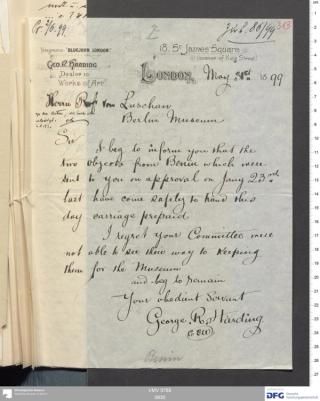 Telegrams "BLUEJOHN LONDON."
GEO. R. HARDING
Dealer in
Works of Art
18, St James Square
(corner of King Street)
London, May 2nd 1899
Herrn Prof von Luschan
Berlin Museum
Sir
I beg to inform you that the
two objects from Benin which were
sent to you on approval on Jany 23rd
last have come safely to hand this
day carriage prepaid
I regret your Committee were
not able to see their way to keeping
them for the Museum
and beg to remain
Your obedient servant
George R. Harding
Benin
VMV 0765
DFG